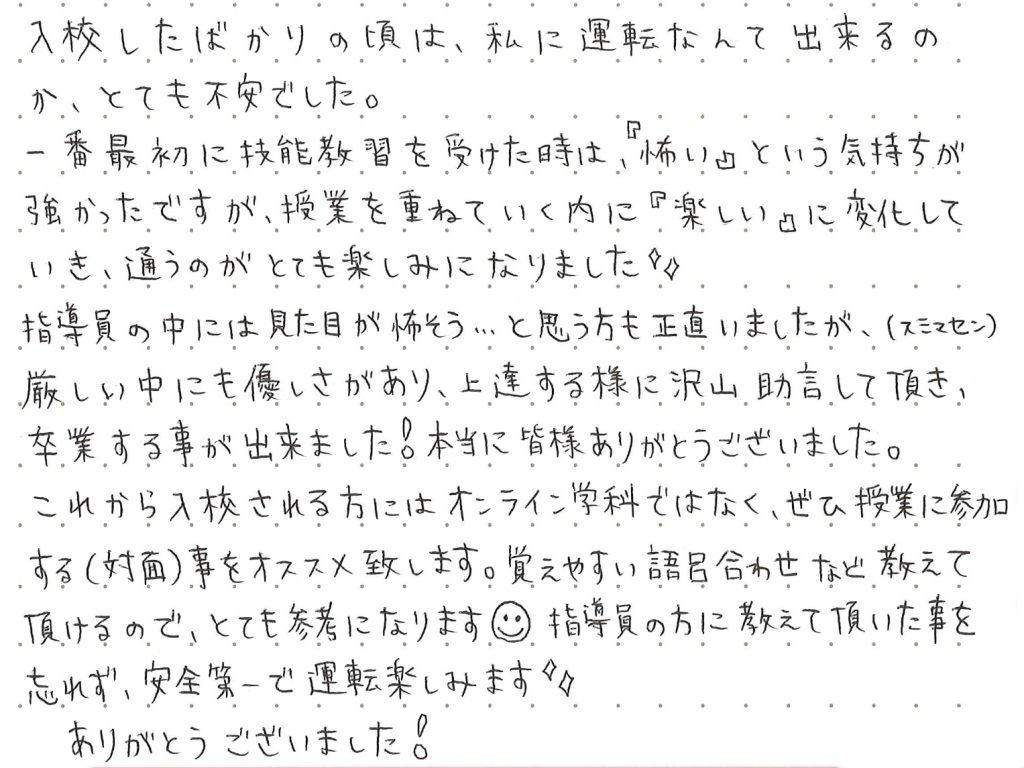 入校したばかりの頃は、私に運転なんて出来るの
か、とても不安でした。
一番最初に技能教習を受けた時は、『怖い』という気持ちが
強かったですが、授業を重ねていく内に『楽しい』に変化して
いき、通うのがとても楽しみになりました✧✧
指導員の中には見た目が怖そう…と思う方も正直いましたが、(スミマセン)
厳しい中にも優しさがあり、上達する様に沢山助言して頂き、
卒業する事が出来ました!本当に皆様ありがとうございました。
これから入校される方にはオンライン学科ではなく、ぜひ授業に参加
する(対面)事をオススメ致します。覚えやすい語呂合わせなど教えて
頂けるので、とても参考になります☺指導員の方に教えて頂いた事を
忘れず、安全第一で運転楽しみます✧✧
ありがとうございました!